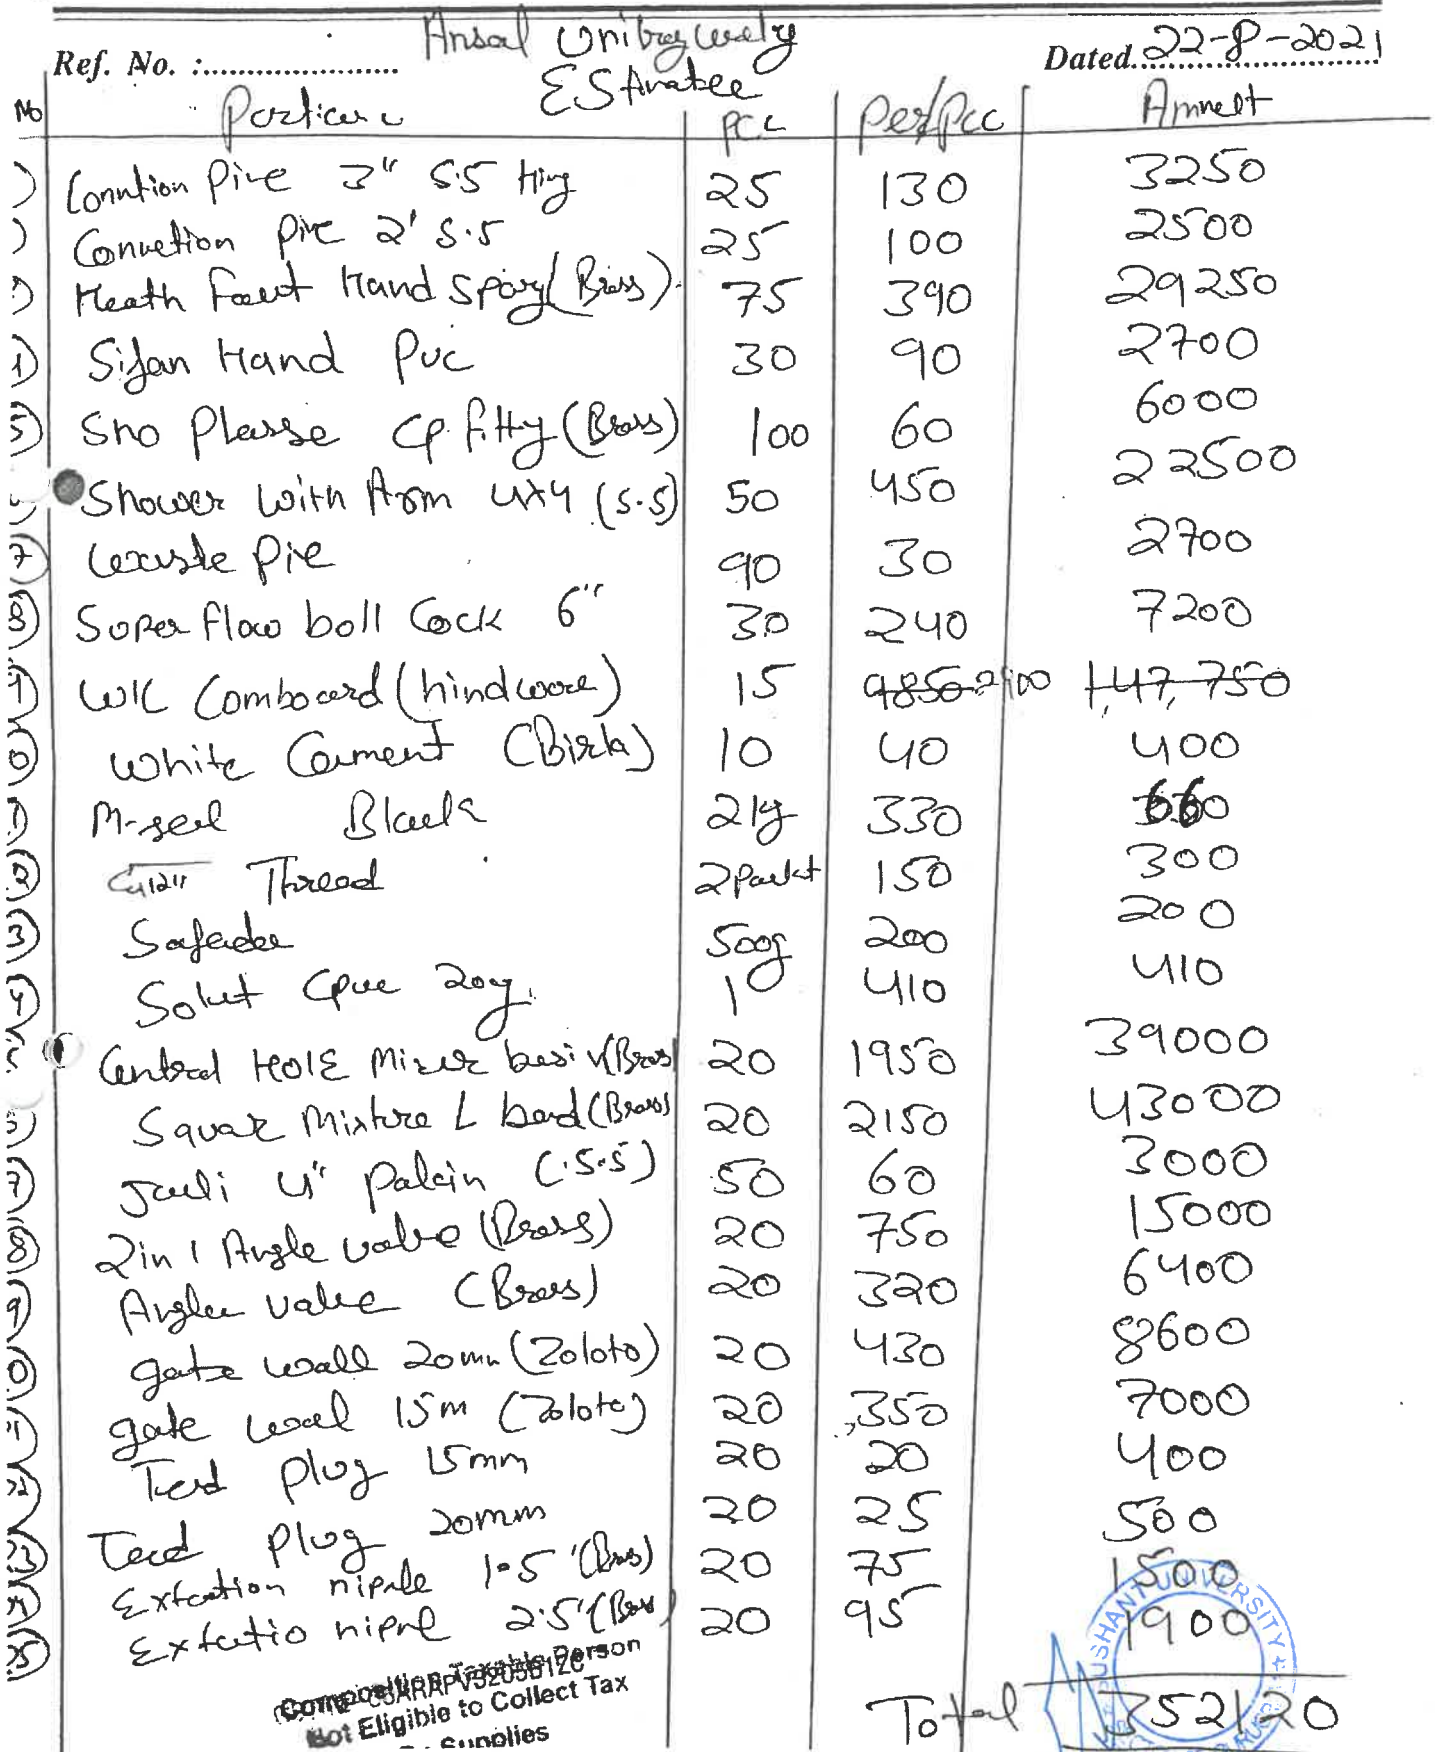 Ansal Unibrgwerty
Ref. No. :..................... Dated. 22-8-2021
EStmatee
No Particure PCC Per/Pcc Amnett
) Conntion Pipe 3" S.S Hing 25 130 3250
) Connetion Pipe 2' S.S 25 100 2500
) Heath Faut Hand Spary (Brass) 75 390 29250
) Sifan Hand Puc 30 90 2700
5) Sno Plasse CP fitty (Brass) 100 60 6000
Shower With Arm 4x4 (S.S) 50 450 22500
7) waste Pipe 90 30 2700
8) Super flow boll Cock 6" 30 240 7200
) W/C Comboard (hindware) 15 9850 2900 1,47,750
0) White Cement (Birla) 10 40 400
1) M-seal Black 2kg 330 660
2) Thread 2Packt 150 300
3) Safeda 500g 200 200
4) Solut Cpvc 20g. 1 410 410
Central HOLE Mixer basin (Brass) 20 1950 39000
Squar Mixture L band (Brass) 20 2150 43000
7) Jauli 4" Palain (S.S) 50 60 3000
8) 2in1 Angle valve (Brass) 20 750 15000
9) Angle valve (Brass) 20 320 6400
0) gate wall 20mm (Zoloto) 20 430 8600
1) gate wal 15m (Zoloto) 20 350 7000
22) Tead Plug 15mm 20 20 400
23) Tead Plug 20mm 20 25 500
Extcation niple 1.5' (Brass) 20 75 1500
Extcatio niple 2.5' (Brass) 20 95 1900
Composition Taxable Person
Not Eligible to Collect Tax
Supplies
Total 352120
SUSHANT UNIVERSITY